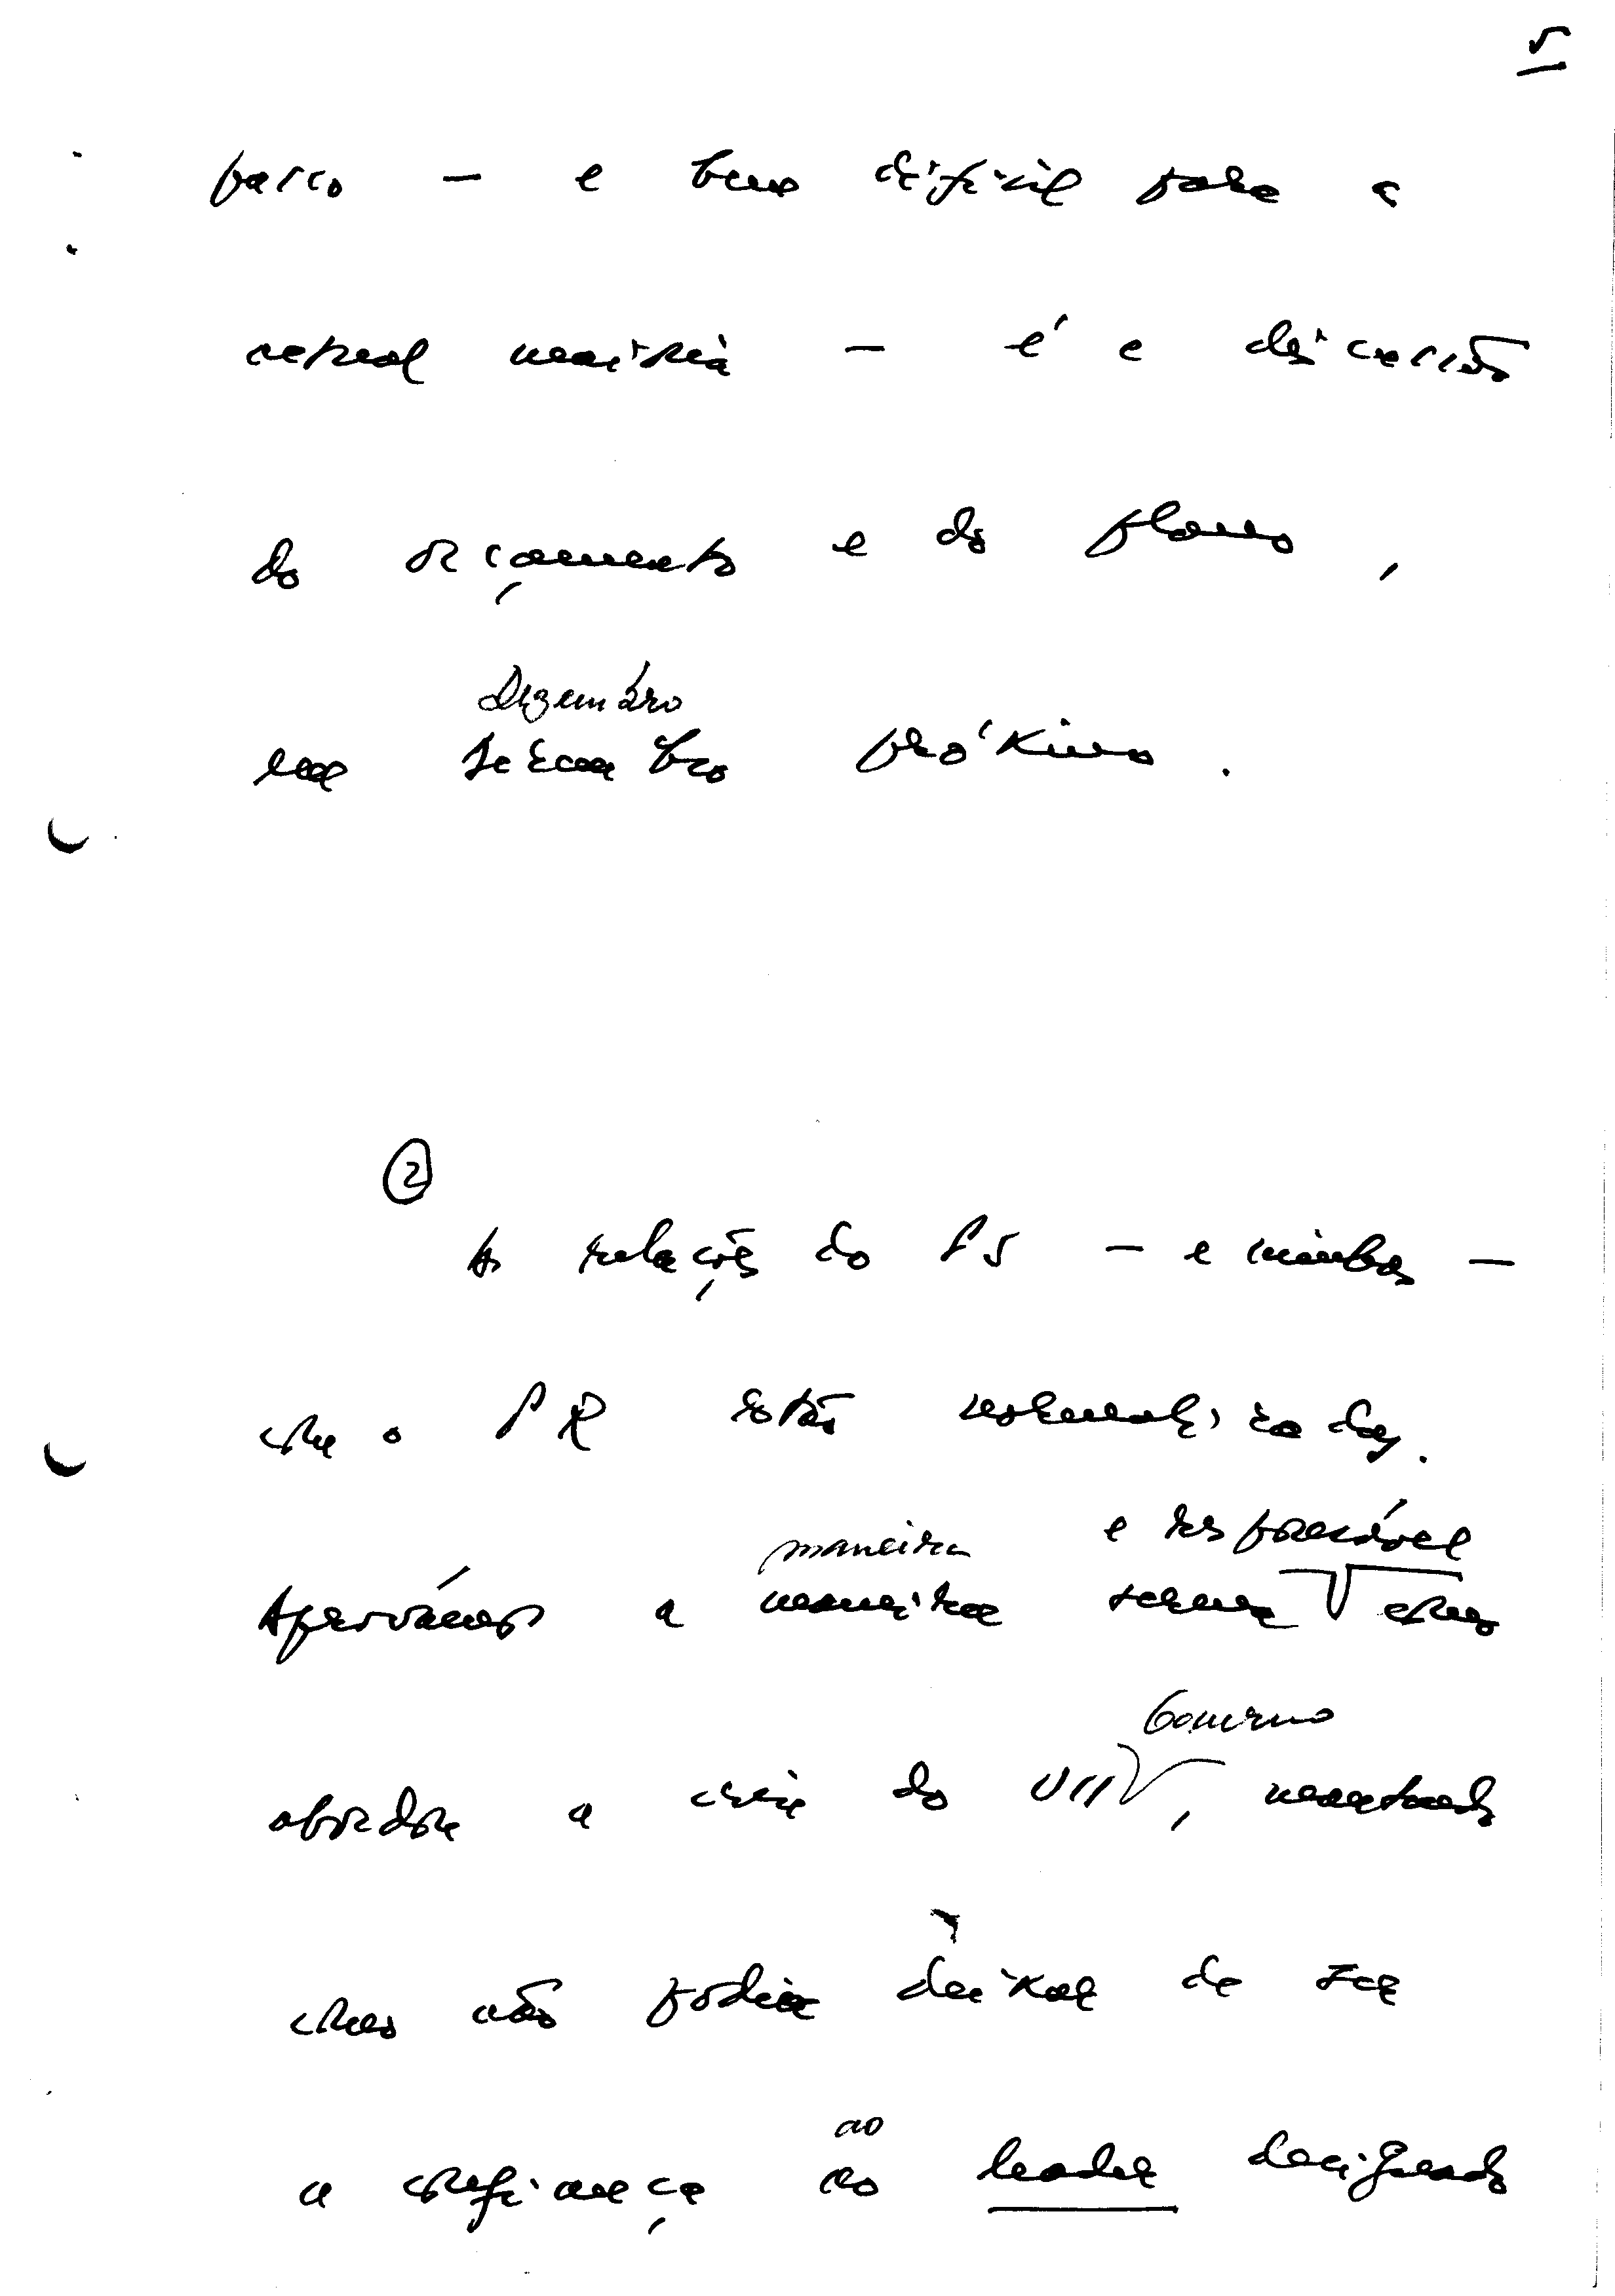 5
passo — e bem difícil para a
actual maioria — é a discussão
do orçamento e do plano,
Dezembro
em Dezembro próximo.
②
As relações do PS — e minhas —
com o PR estão normalizadas.
e responsável
maneira
Aprovámos a maneira serena como
Governo
abordou a crise do VII, mantendo
como não podia deixar de ser
ao
a confiança ao leader designado